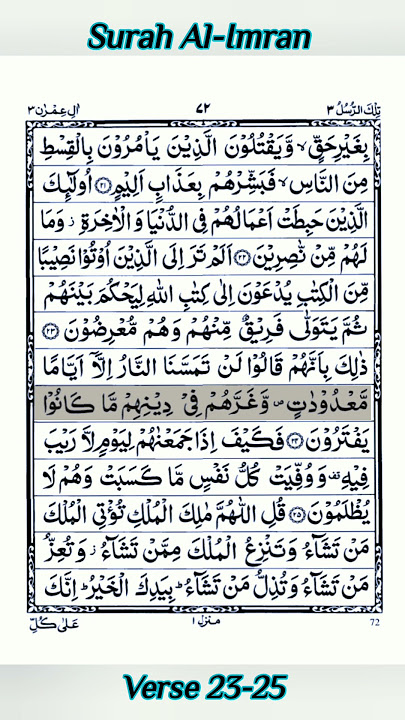 Surah Al-Imran
تِلْكَ الرُّسُلُ ٣ ٧٢ اٰلِ عِمْرٰن ٣
بِغَيْرِ حَقٍّ ۙ وَّيَقْتُلُوْنَ الَّذِيْنَ يَاْمُرُوْنَ بِالْقِسْطِ
مِنَ النَّاسِ ۙ فَبَشِّرْهُمْ بِعَذَابٍ اَلِيْمٍ ﴿۲۱﴾ اُولٰٓئِكَ
الَّذِيْنَ حَبِطَتْ اَعْمَالُهُمْ فِى الدُّنْيَا وَ الْاٰخِرَةِ ۫ وَمَا
لَهُمْ مِّنْ نّٰصِرِيْنَ ﴿۲۲﴾ اَلَمْ تَرَ اِلَى الَّذِيْنَ اُوْتُوْا نَصِيْبًا
مِّنَ الْكِتٰبِ يُدْعَوْنَ اِلٰى كِتٰبِ اللّٰهِ لِيَحْكُمَ بَيْنَهُمْ
ثُمَّ يَتَوَلّٰى فَرِيْقٌ مِّنْهُمْ وَهُمْ مُّعْرِضُوْنَ ﴿۲۳﴾
ذٰلِكَ بِاَنَّهُمْ قَالُوْا لَنْ تَمَسَّنَا النَّارُ اِلَّاۤ اَيَّامًا
مَّعْدُوْدٰتٍ ۪ وَّغَرَّهُمْ فِىْ دِيْنِهِمْ مَّا كَانُوْا
يَفْتَرُوْنَ ﴿۲۴﴾ فَكَيْفَ اِذَا جَمَعْنٰهُمْ لِيَوْمٍ لَّا رَيْبَ
فِيْهِ ۟ وَوُفِّيَتْ كُلُّ نَفْسٍ مَّا كَسَبَتْ وَهُمْ لَا
يُظْلَمُوْنَ ﴿۲۵﴾ قُلِ اللّٰهُمَّ مٰلِكَ الْمُلْكِ تُؤْتِى الْمُلْكَ
مَنْ تَشَآءُ وَتَنْزِعُ الْمُلْكَ مِمَّنْ تَشَآءُ ۫ وَتُعِزُّ
مَنْ تَشَآءُ وَتُذِلُّ مَنْ تَشَآءُ ؕ بِيَدِكَ الْخَيْرُ ؕ اِنَّكَ
72 منزل ١ عَلٰى كُلِّ
Verse 23-25